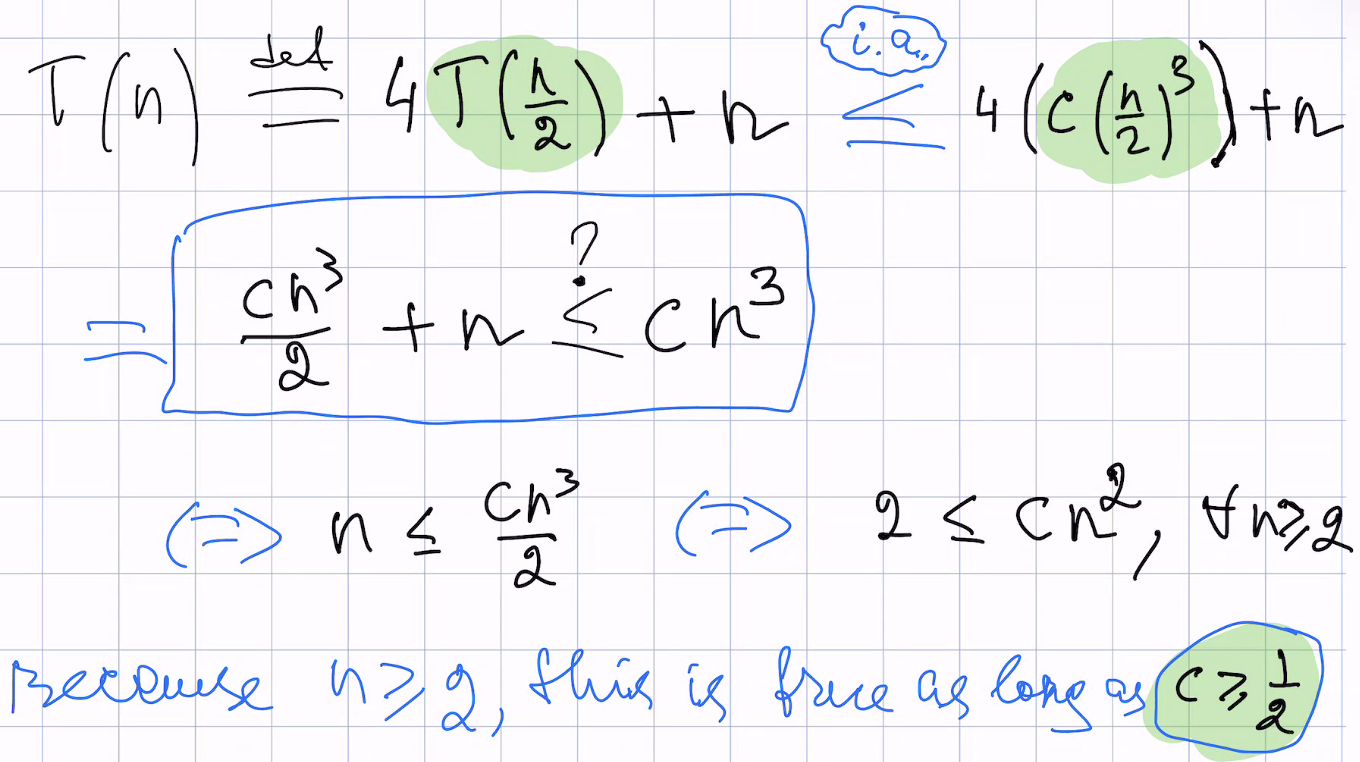 T(n) def= 4T(n/2) + n i.a. ≤ 4(c(n/2)^3) + n
= cn^3/2 + n ?≤ cn^3
(=> n ≤ cn^3/2 (=> 2 ≤ cn^2, ∀n≥2
Because n≥2, this is true as long as c≥1/2